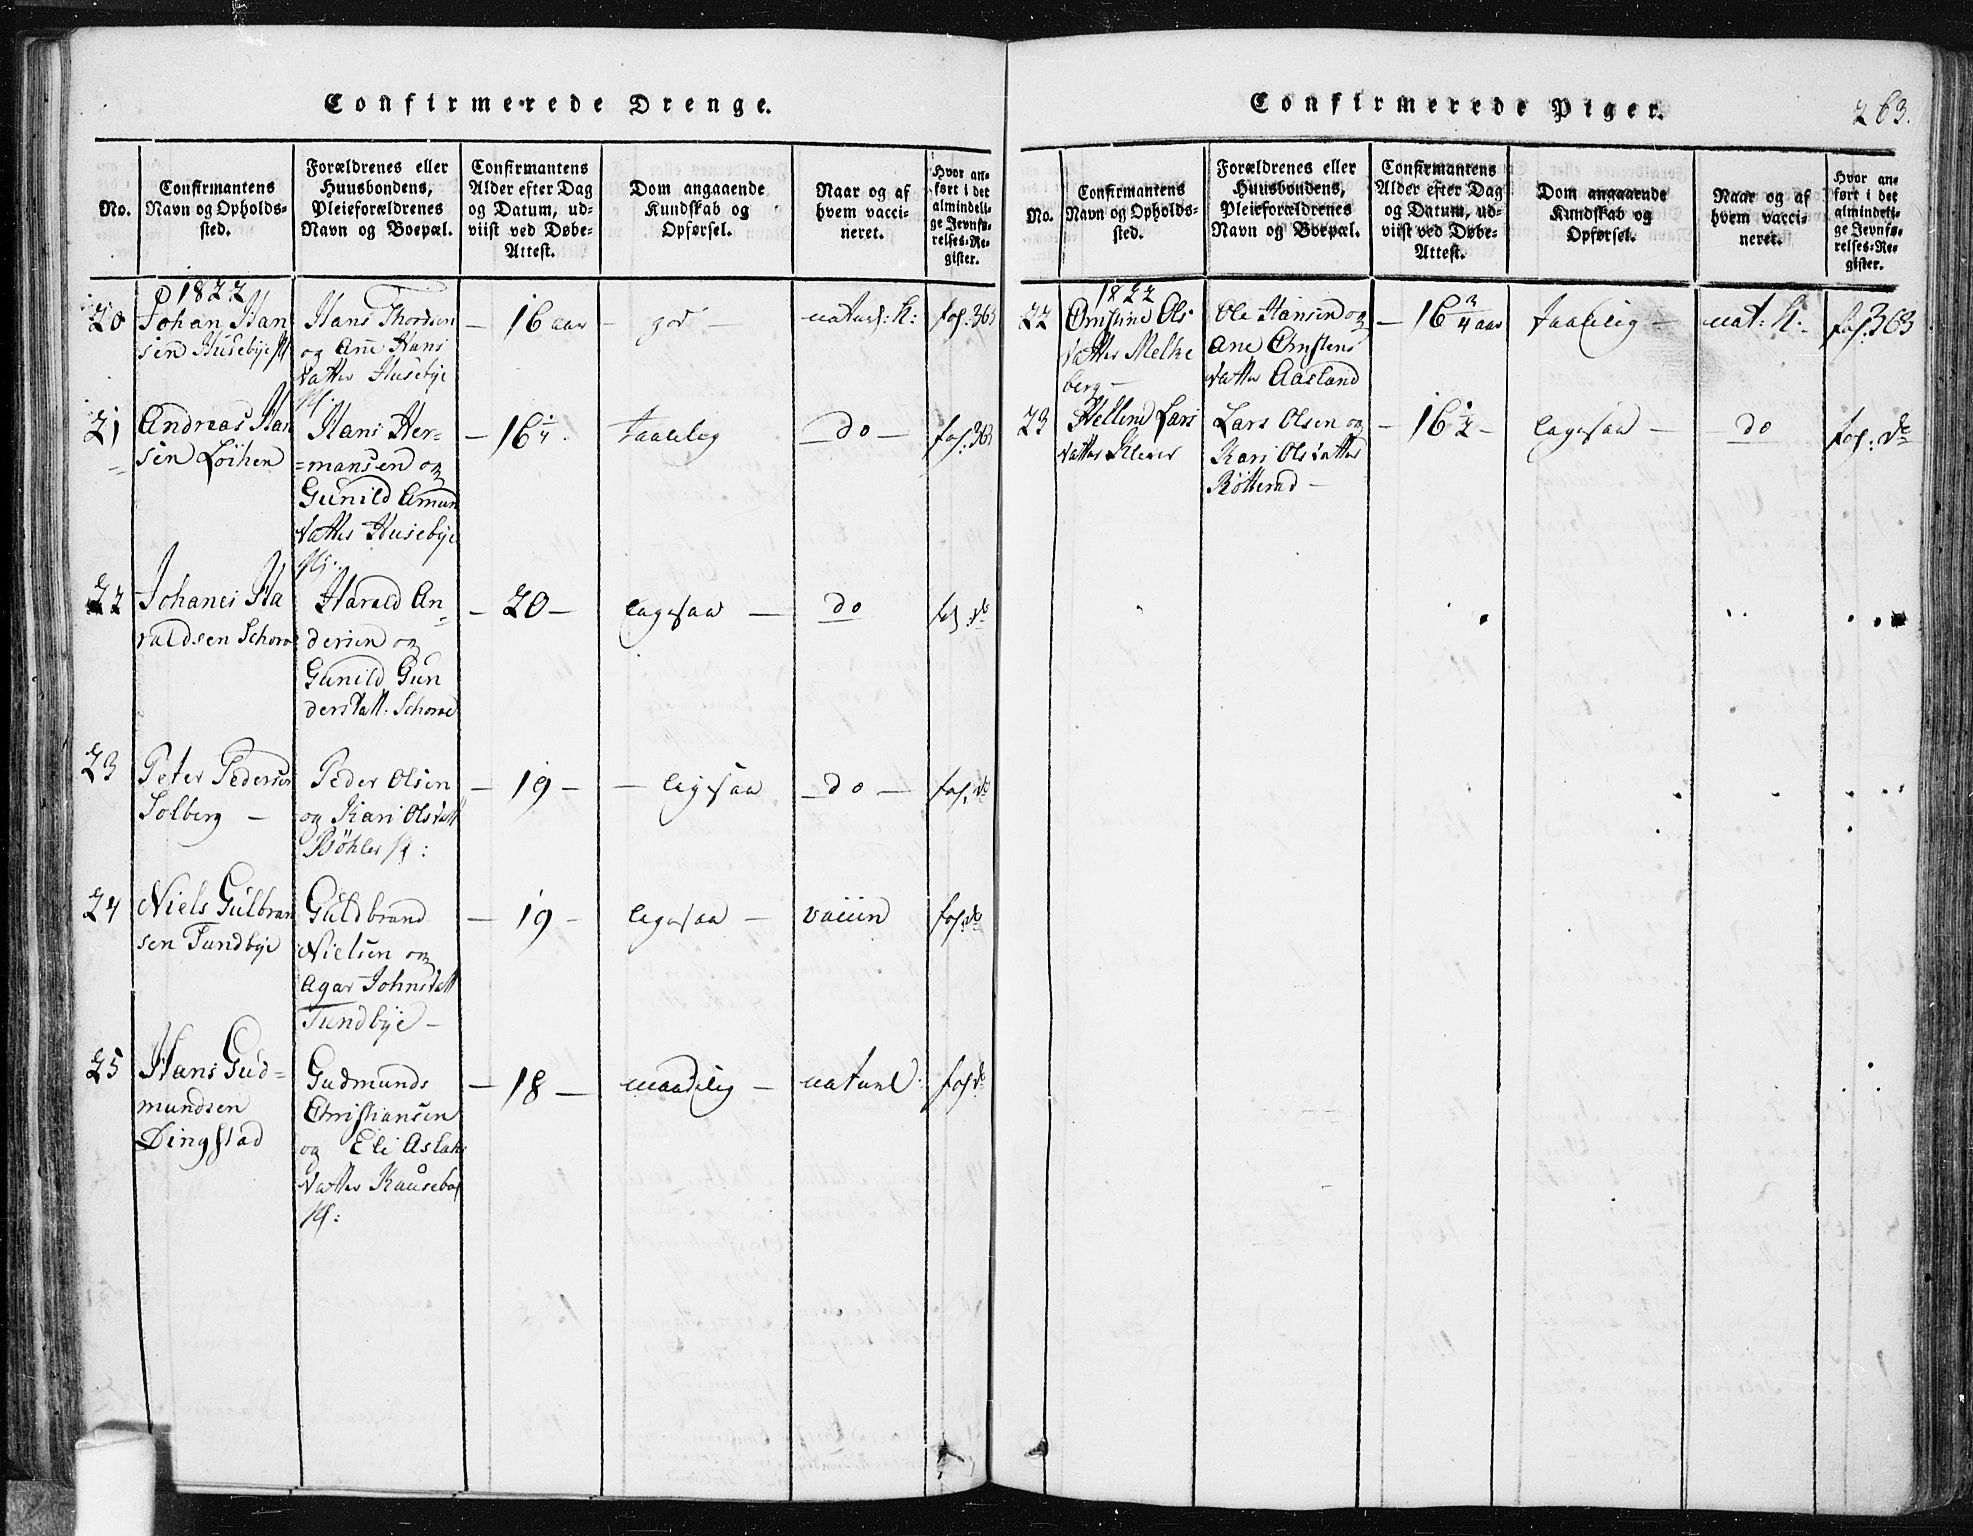 Confirmerede Drenge.
No.
Confirmantens
Navn og Opholds-
sted.
Forældrenes eller
Huusbondens,
Pleieforældrenes
Navn og Boepæl.
Confirmantens
Alder efter Dag
og Datum, ud-
viist ved Døbe-
Attest.
Dom angaaende
Kundskab og
Opførsel.
Naar og af
hvem vacci-
neret.
Hvor an-
ført i det
almindeli-
ge Jevnfø-
relses-Re-
gister.
1822
20
Johan Han
sen Husebye
Hans Thordsen
og Anne Hans
datter Husebye
— 16 aar
— god —
naturl: K:
fol: 363
21
Andreas Han
sen Löchen
Hans Her-
=mansen og
Gunild Amun
datter Husebye
— 16 1/4 .
taalelig
— do —
fol: 363
22
Johanes Ha
raldsen Schorve
Harald An-
dersen og
Gunild Gun
dersdatt. Schorve
— 20 —
ligesaa —
do
fol: do
23
Peter Pedersen
Solberg —
Peder Olsen
og Kari Olsdatt
Böhler
— 19 —
— ligesaa
— do —
fol: do
24
Niels Gulbran
sen Tundbye
Guldbrand
Nielsen og
Agar Johnsdatt
Tundbye —
— 19 —
ligesaa —
vaccin
fol: do
25
Hans Gud=
mundsen
Dingstad
Gudmunds
Christiansen
og Eli Aslaks
datter
— 18 —
maadelig —
naturl:
fol: do
Confirmerede Piger.
263.
No.
Confirmantens
Navn og Opholds-
sted.
Forældrenes eller
Huusbondens,
Pleieforældrenes
Navn og Boepæl.
Confirmantens
Alder efter Dag
og Datum, ud-
viist ved Døbe-
Attest.
Dom angaaende
Kundskab og
Opførsel.
Naar og af
hvem vacci-
neret.
Hvor an-
ført i det
almindeli-
ge Jevnfø-
relses-Re-
gister.
1822
22
Christine Ols
datter Melke
berg —
Ole Hansen og
Ane Christens
datter Aasland
— 16 3/4 aar
taalelig —
nat: K:
fol: 363
23
Hellene Lars
datter Klever
Lars Olsen og
Kari Olsdatter
Röllerud —
— 16 1/2 —
ligesaa —
— do
fol: do